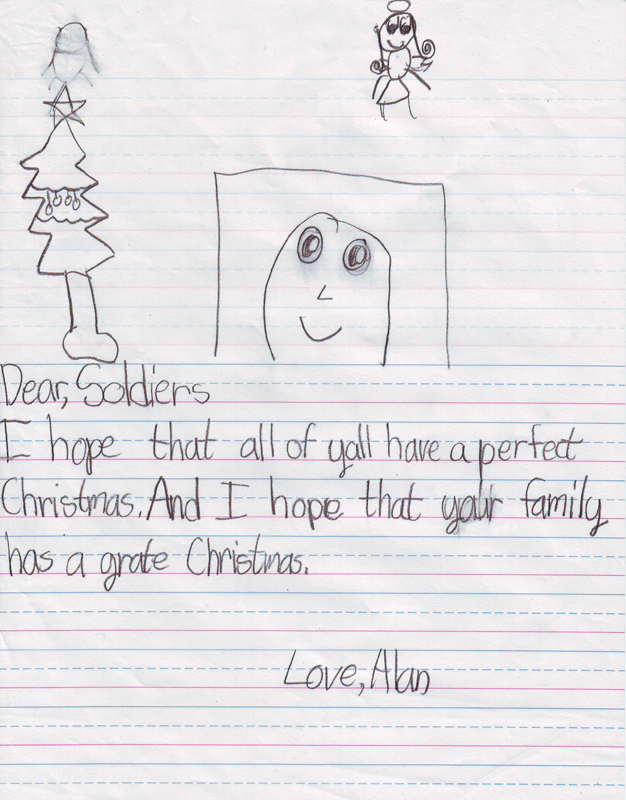 Dear, Soldiers
I hope that all of yall have a perfect
Christmas. And I hope that your family
has a grate Christmas.
Love, Alan